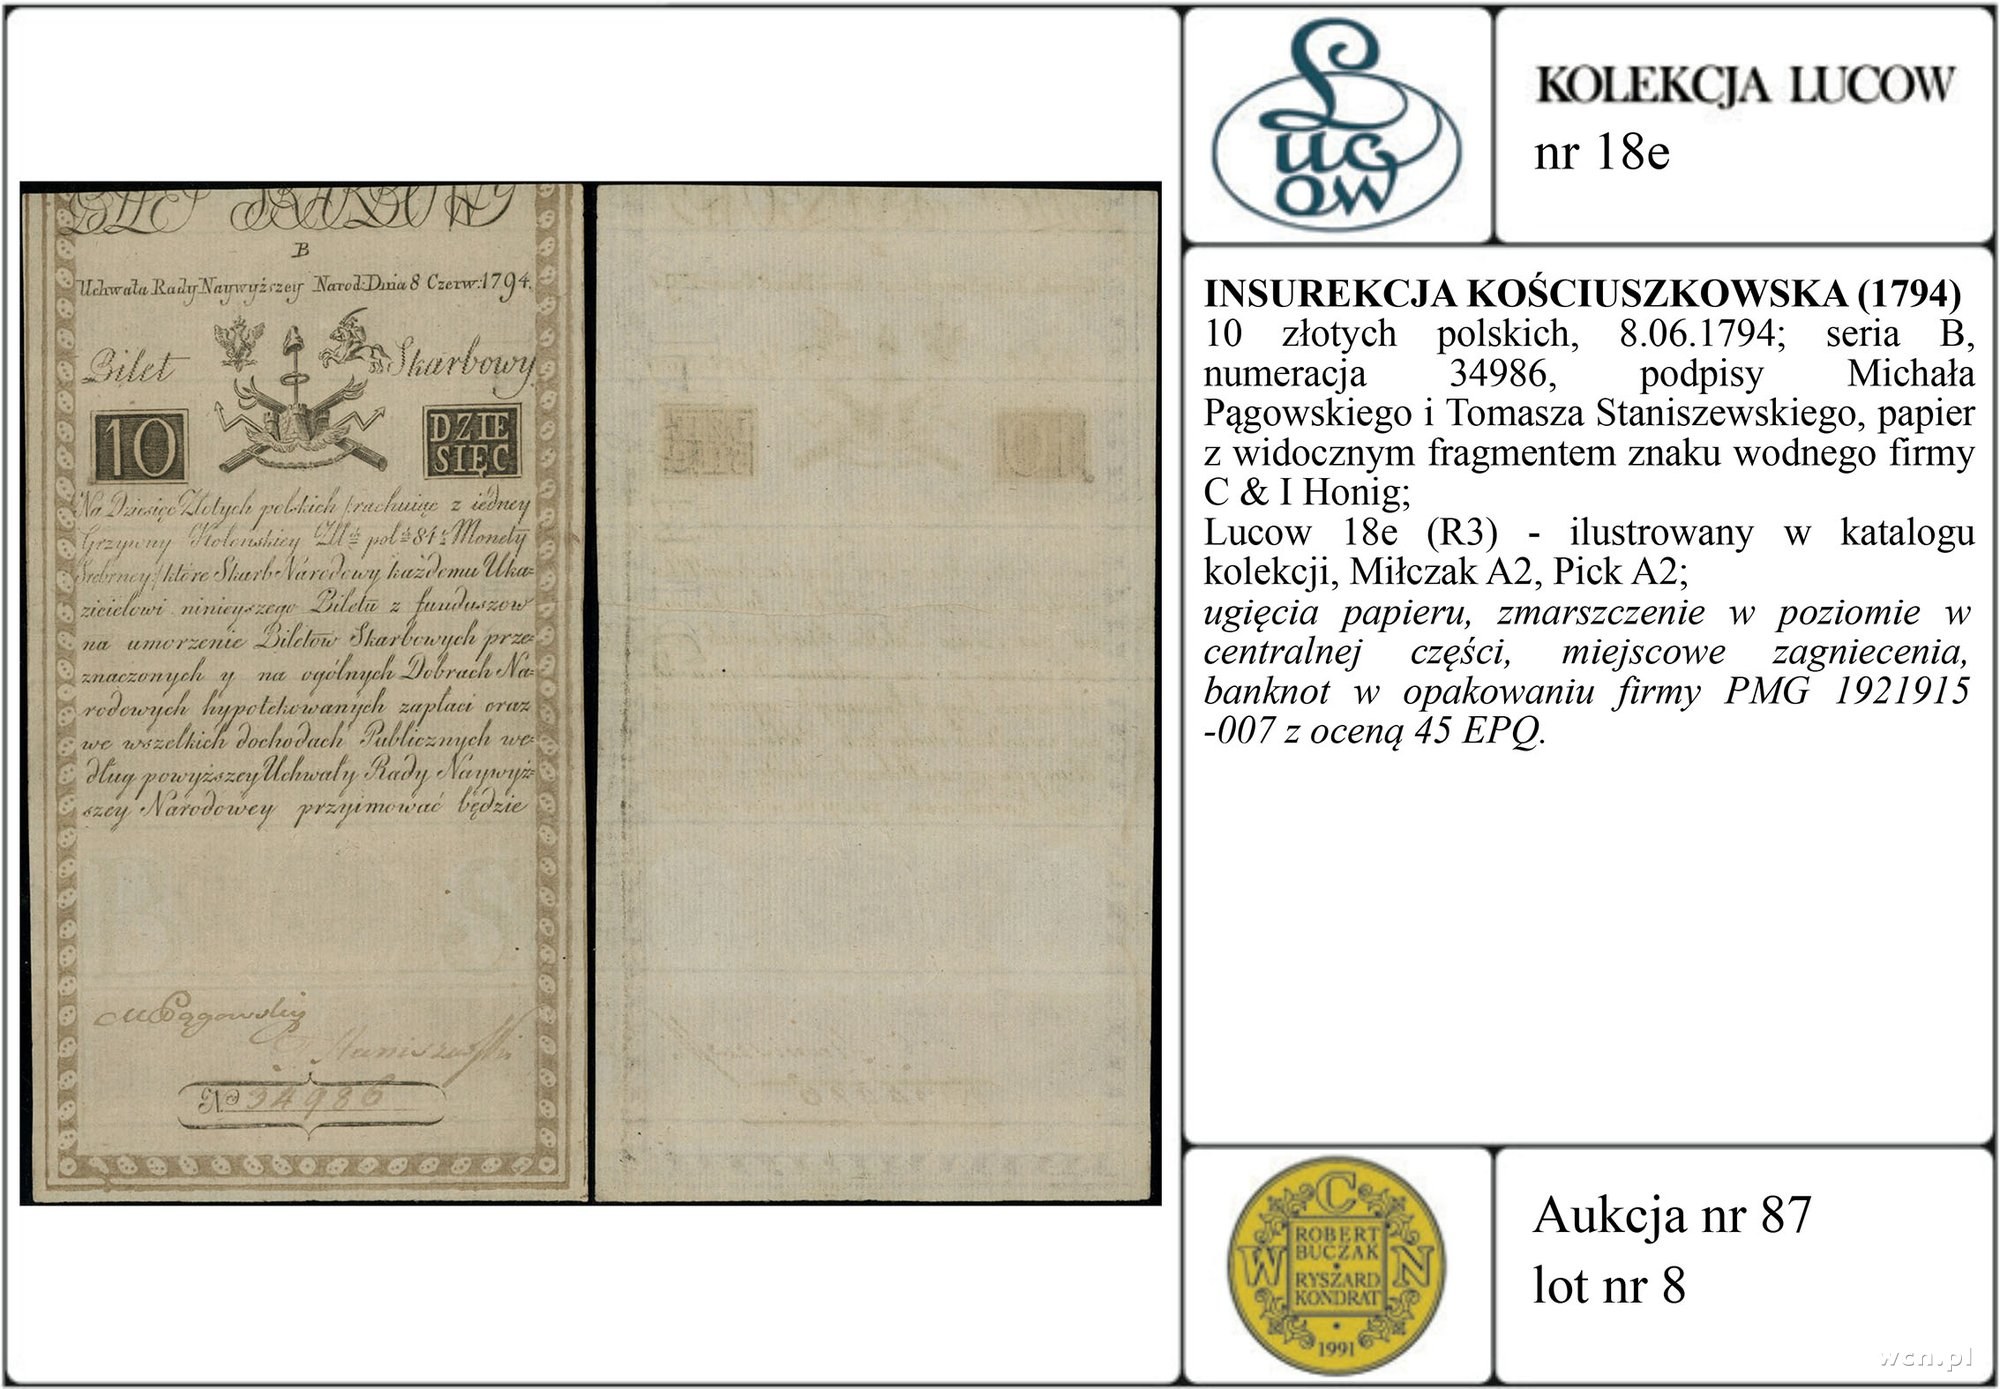 BILET SKARBOWY
B
Uchwała Rady Naywyższey Narod: Dnia 8 Czerw: 1794.
Bilet Skarbowy
10
DZIE
SIĘĆ
Na Dziesięć Złotych polskich /:rachuiąc z iedney
Grzywny Kolonskiey Zł pol 84 Monety
Srebrney:/ które Skarb Narodowy każdemu Uka=
zicielowi ninieyszego Biletu z funduszow
na umorzenie Biletow Skarbowych prze=
znaczonych y na ogólnych Dobrach Na=
rodowych hypotekowanych zapłaci oraz
we wszelkich dochodach Publicznych we=
dług powyższey Uchwały Rady Naywyż=
szey Narodowey przyimować będzie
B S
M Pągowski
T Staniszewski
No 34986
Lucow
KOLEKCJA LUCOW
nr 18e
INSUREKCJA KOŚCIUSZKOWSKA (1794)
10 złotych polskich, 8.06.1794; seria B,
numeracja 34986, podpisy Michała
Pągowskiego i Tomasza Staniszewskiego, papier
z widocznym fragmentem znaku wodnego firmy
C & I Honig;
Lucow 18e (R3) - ilustrowany w katalogu
kolekcji, Miłczak A2, Pick A2;
ugięcia papieru, zmarszczenie w poziomie w
centralnej części, miejscowe zagniecenia,
banknot w opakowaniu firmy PMG 1921915
-007 z oceną 45 EPQ.
W C N
ROBERT
BUCZAK
RYSZARD
KONDRAT
1991
Aukcja nr 87
lot nr 8
wcn.pl